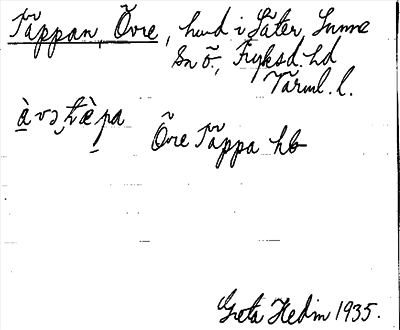 Täppan, Övre, hmd i Säter, Sunne
Sn ö., Fryksd. hd
Värml. l.
Övre Täppa hb
Greta Hedin 1935.